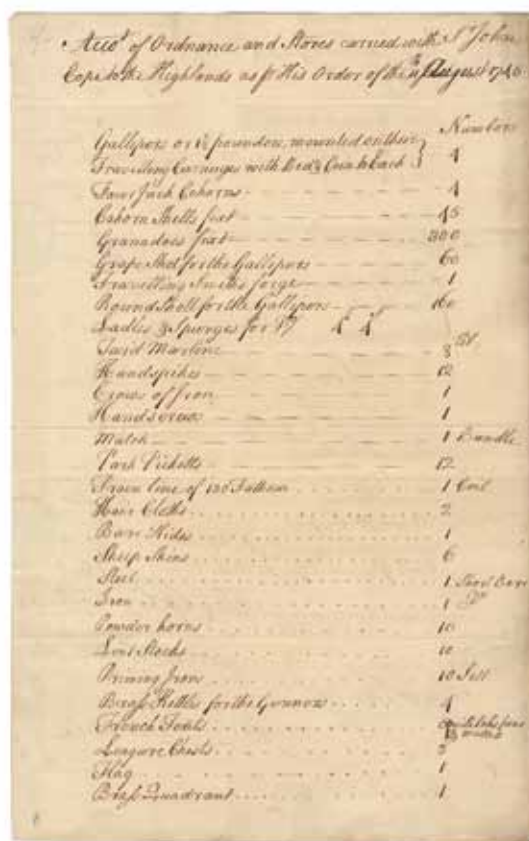 Acco.t of Ordnance and Stores carried with S.r John
Cope to the Highlands as pr His Order of the August 1745
Numbers
Gallipers or 1½ pounders, mounted on their
Travelling Carriages with Bed & Coin to Each } 4
Four Inch Cohorns 4
Cohorn Shells fixt 45
Granadoes fixt 300
Grape Shot for the Gallipers 60
Travelling Smiths forge 1
Round Shott for the Gallipers 160
Ladles & Spunges for Do 4 4
Tard Marline 8 lb
Handspikes 12
Crows of Iron 1
Handscrew 1
Match 1 Bundle
Park Picketts 12
Drawn line of 120 Fathom 1 Coil
Hair Cloths 2
Bare Hides 1
Sheep Skins 6
Steel 1 Barr
Iron 1 Do
Powder horns 10
Lint Stocks 10
Priming Irons 10 Sett
Brass Kettles for the Gunners 4
French Tents
Chests 3
Flag 1
Brass Quadrant 1